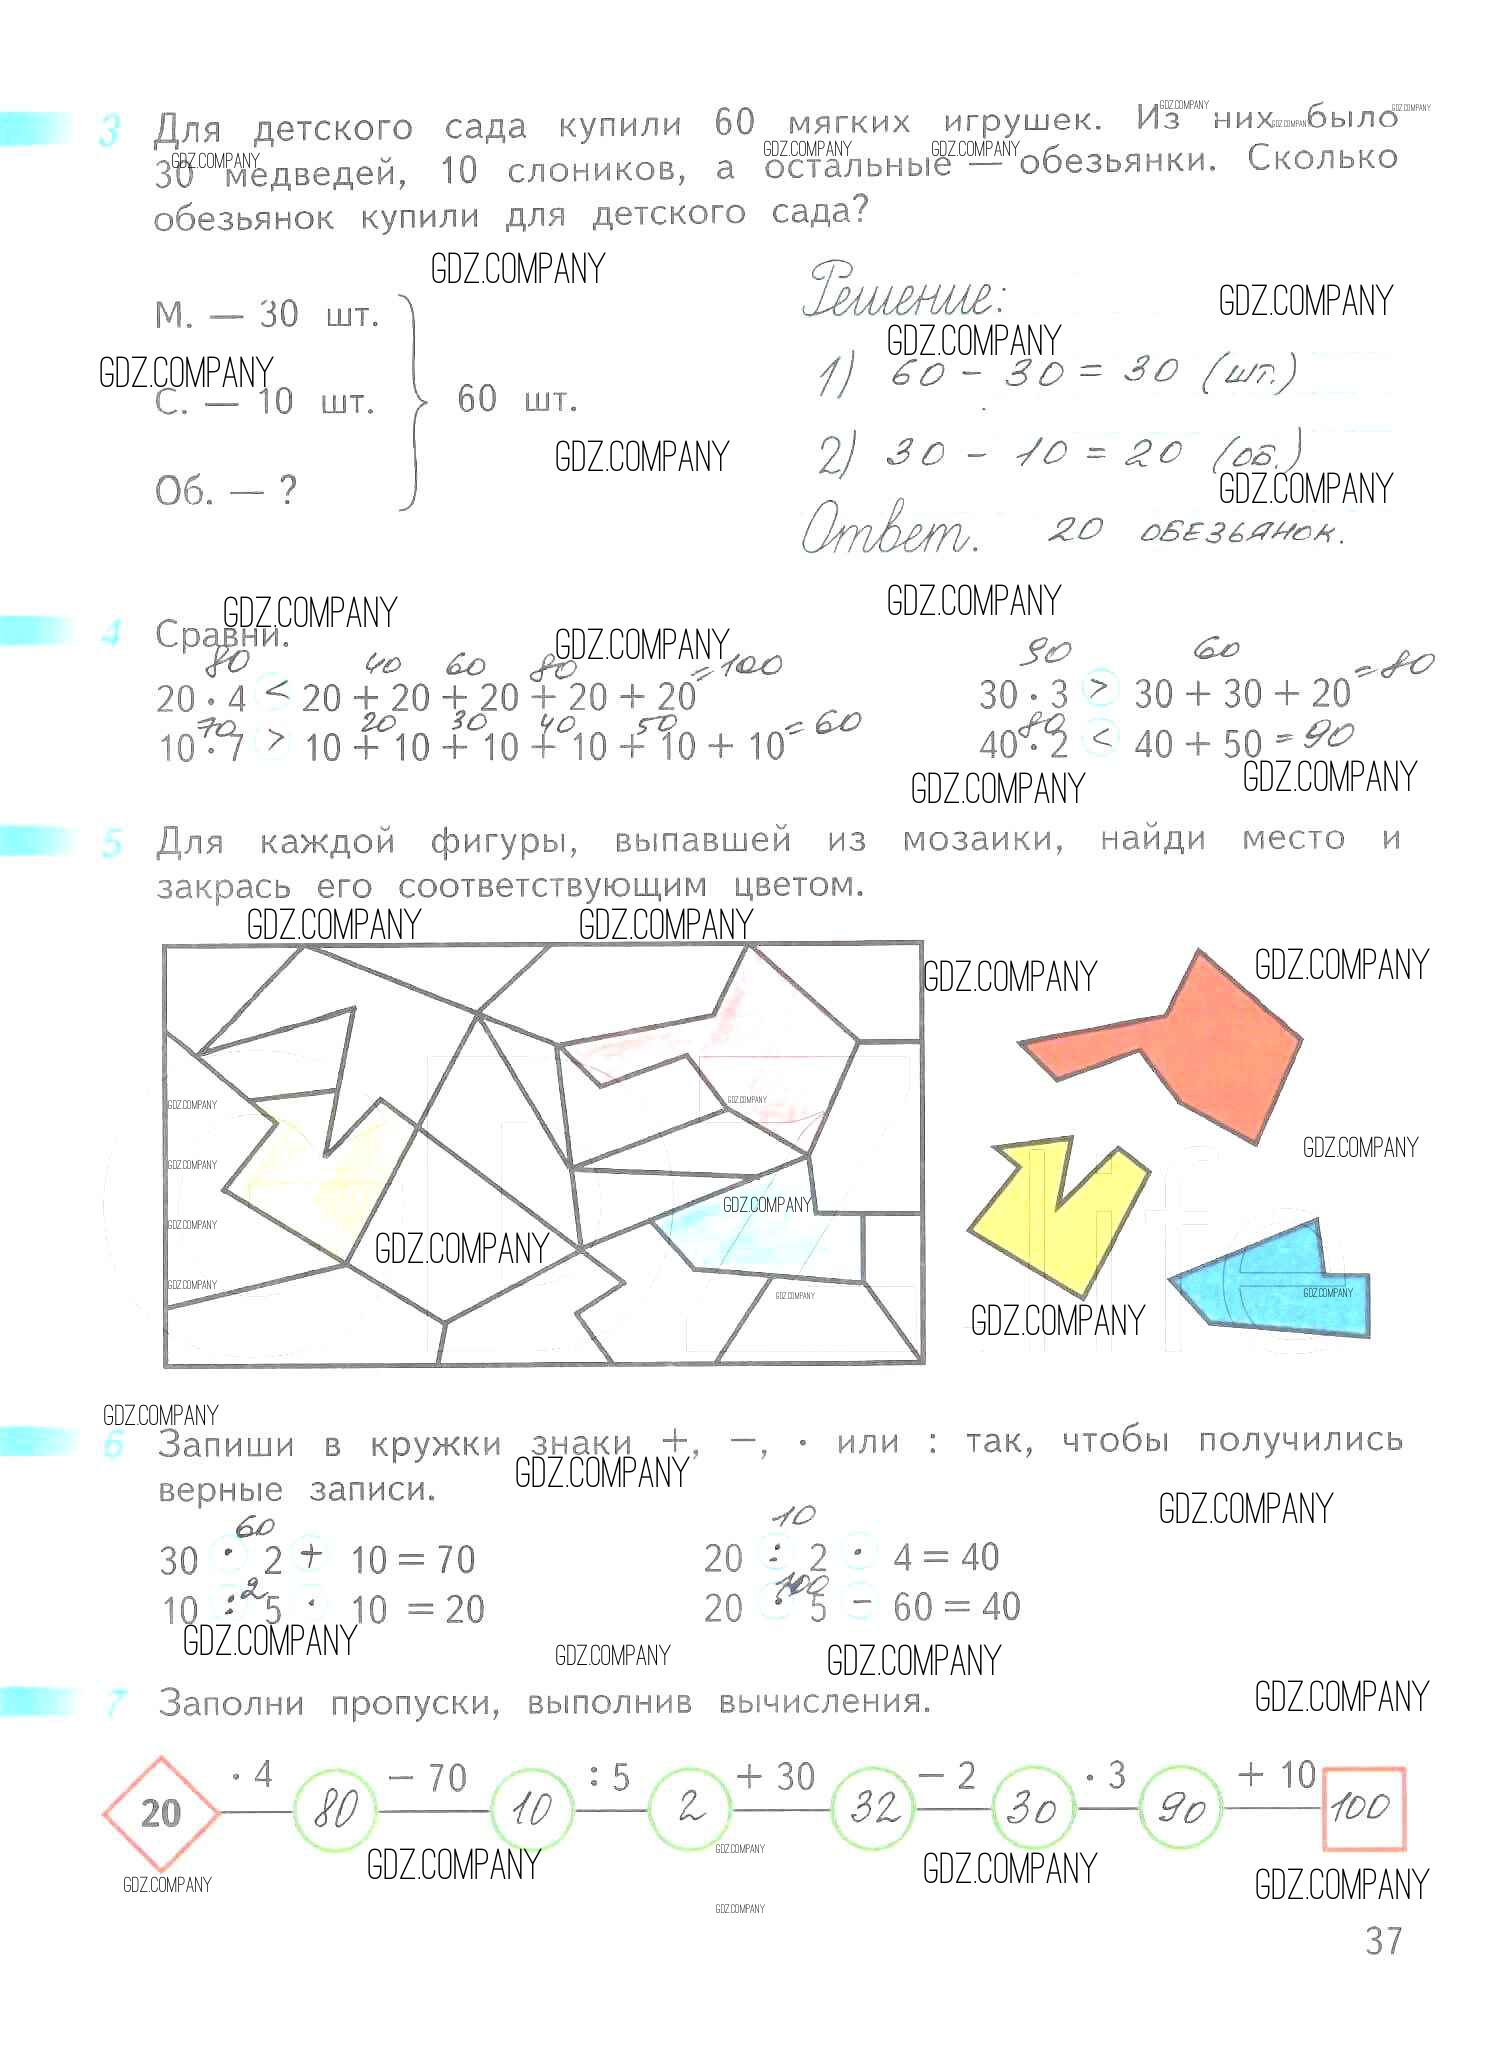 3 Для детского сада купили 60 мягких игрушек. Из них было
30 медведей, 10 слоников, а остальные — обезьянки. Сколько
обезьянок купили для детского сада?
GDZ.COMPANY
М. — 30 шт.
С. — 10 шт.
Об. — ?
60 шт.
Решение:
1) 60 - 30 = 30 (шт.)
2) 30 - 10 = 20 (об.)
Ответ. 20 обезьянок.
4 Сравни.
80 40 60 80
20 · 4 < 20 + 20 + 20 + 20 + 20 = 100
70 20 30 40 50
10 · 7 > 10 + 10 + 10 + 10 + 10 + 10 = 60
90 60
30 · 3 > 30 + 30 + 20 = 80
80
40 · 2 < 40 + 50 = 90
5 Для каждой фигуры, выпавшей из мозаики, найди место и
закрась его соответствующим цветом.
GDZ.COMPANY
6 Запиши в кружки знаки +, −, · или : так, чтобы получились
верные записи.
60
30 · 2 + 10 = 70
2
10 : 5 · 10 = 20
10
20 : 2 · 4 = 40
100
20 · 5 − 60 = 40
GDZ.COMPANY
7 Заполни пропуски, выполнив вычисления.
· 4 − 70 : 5 + 30 − 2 · 3 + 10
20 80 10 2 32 30 90 100
GDZ.COMPANY
37